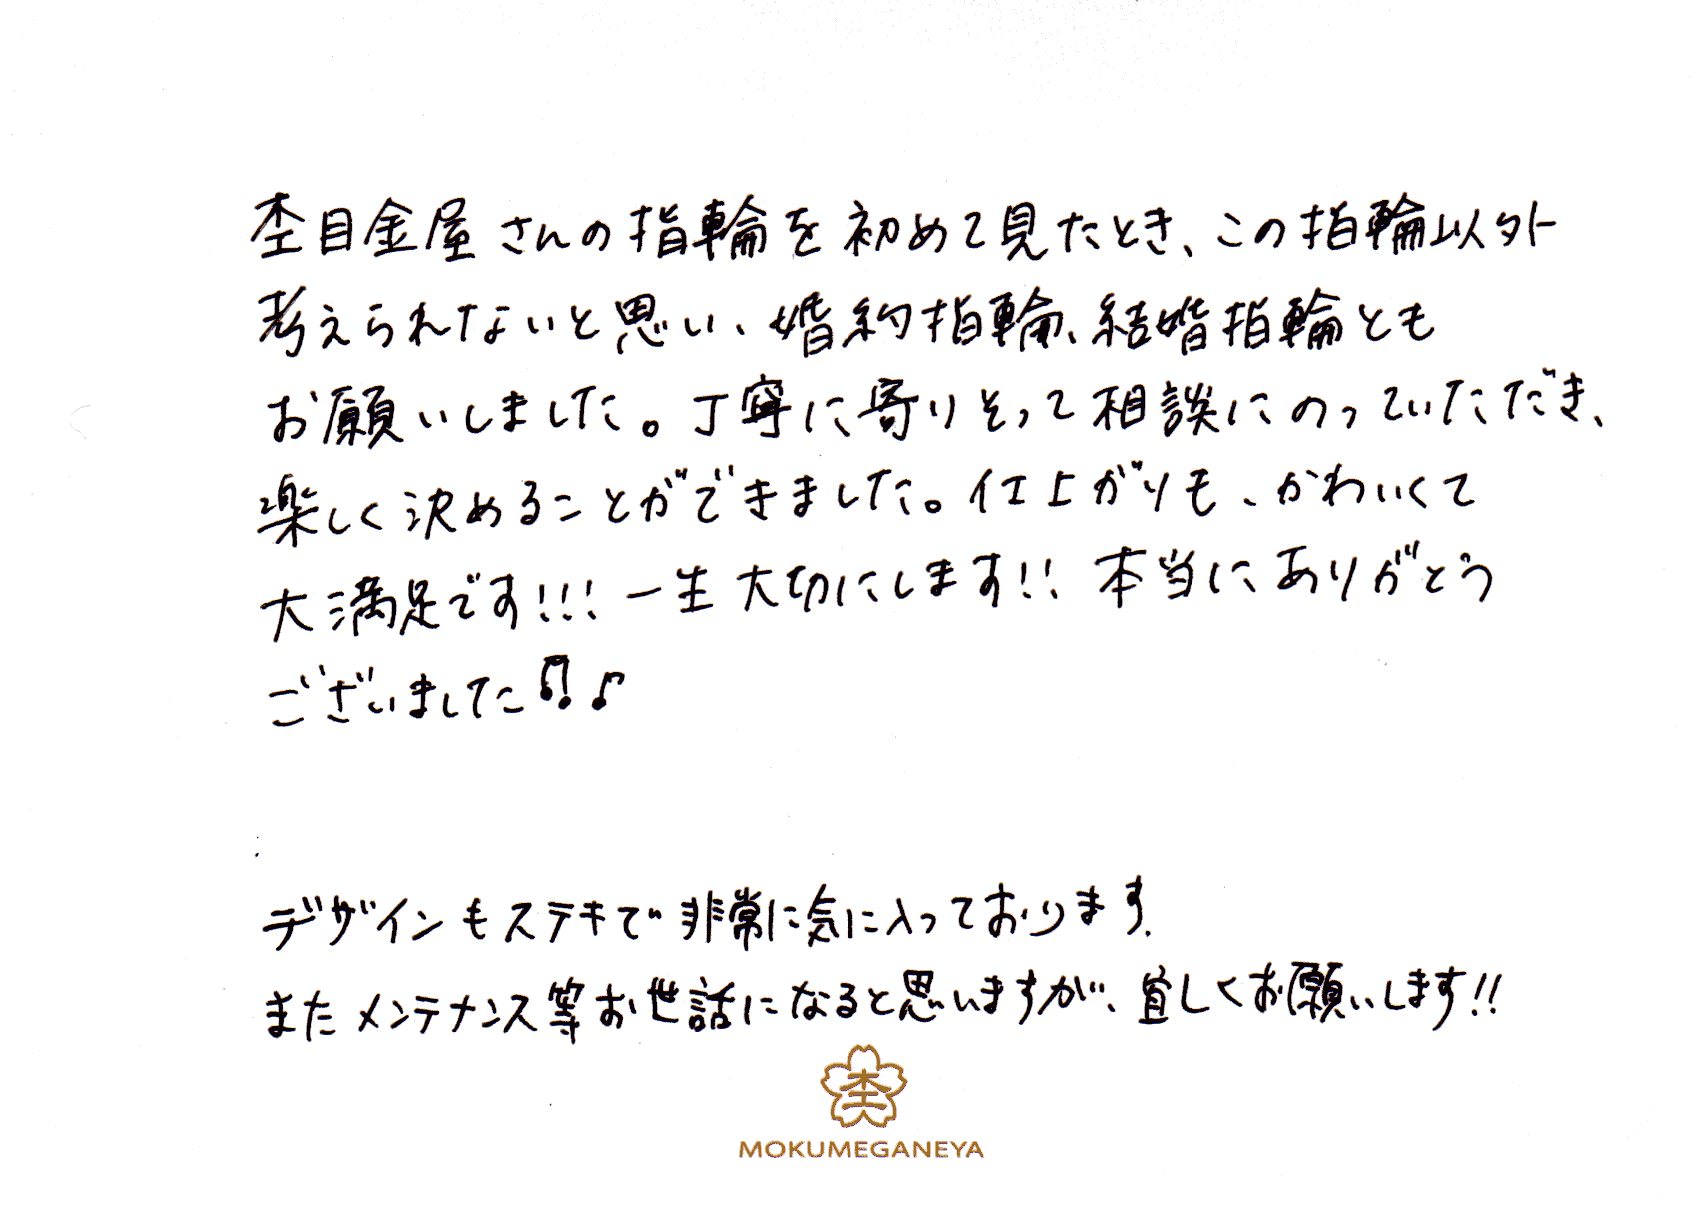 杢目金屋さんの指輪を初めて見たとき、この指輪以外
考えられないと思い、婚約指輪、結婚指輪とも
お願いしました。丁寧に寄りそって相談にのっていただき、
楽しく決めることができました。仕上がりも、かわいくて
大満足です!!!一生大切にします!!本当にありがとう
ございました♫♪
デザインもステキで非常に気に入っております.
またメンテナンス等お世話になると思いますが、宜しくお願いします!!
杢
MOKUMEGANEYA